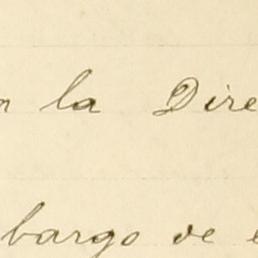 n la Dire
bargo de e